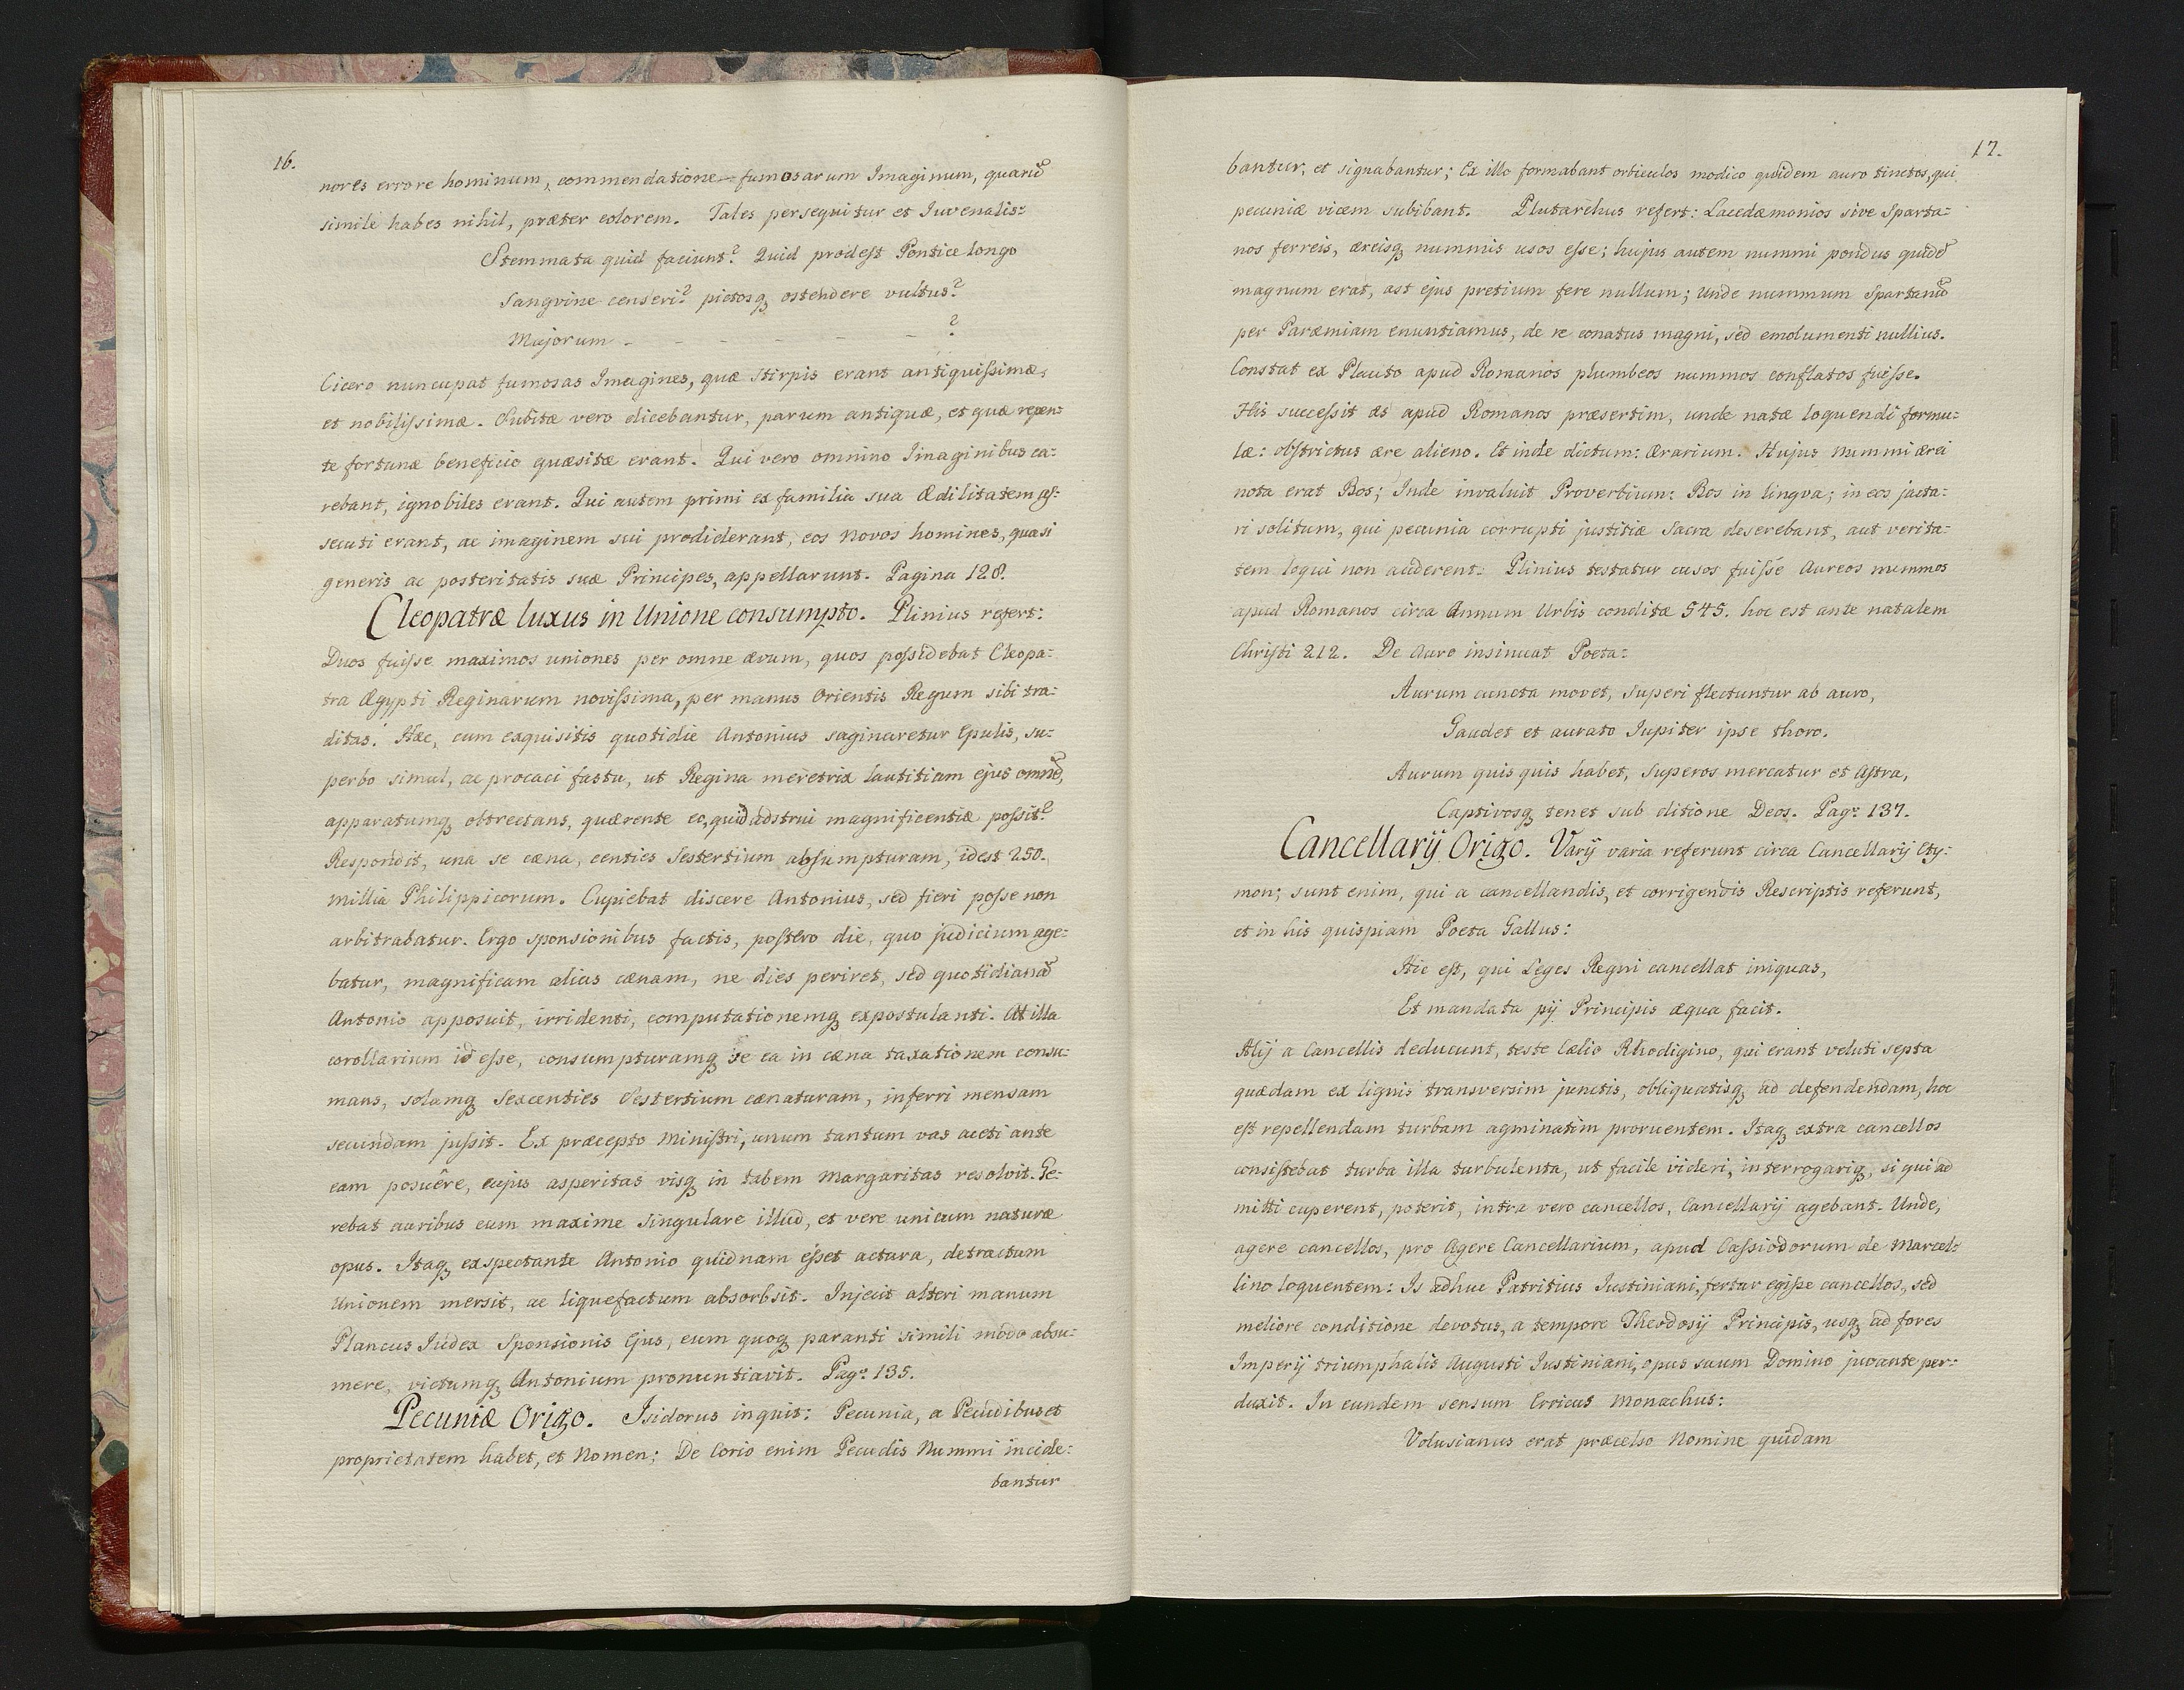 16.
nores errore hominum, commendatione fumosarum Imaginum, quarū
simile habes nihil, præter colorem. Tales persequitur et Juvenalis:
Stemmata quid faciunt? Quid prodest Pontice longo
Sangvine censeri? pictosq₃ ostendere vultus?
Majorum - - - - - - ?
Cicero nuncupat fumosas Imagines, quæ Stirpis erant antiquissimæ,
et nobilissimæ. Subitæ vero dicebantur, parum antiquæ, et quæ repen:
te fortunæ beneficio quæsitæ erant. Qui vero omnino Imaginibus ca:
rebant, ignobiles erant. Qui autem primi ex familia sua Ædilitatem as:
secuti erant, ac imaginem sui prodiderant, eos Novos homines, quasi
generis ac posteritatis suæ Principes, appellarunt. Pagina 128.
Cleopatræ luxus in Unione consumpto. Plinius refert:
Duos fuisse maximos uniones per omne ævum, quos possidebat Cleopa:
tra Ægypti Reginarum novissima, per manus Orientis Regum sibi tra:
ditas. Hæc, cum exquisitis quotidie Antonius saginaretur Epulis, su:
perbo simul, ac procaci fastu, ut Regina meretrix lautitiam ejus omnē,
apparatumq₃ obtrectans, quærente eo, quid adstrui magnificentiæ possit?
Respondit, una se cæna, centies Sestertium absumpturam, idest 250.
millia Philippicorum. Cupiebat discere Antonius, sed fieri posse non
arbitrabatur. Ergo sponsionibus factis, postero die, quo judicium age:
batur, magnificam alias cænam, ne dies periret, sed quotidianā
Antonio apposuit, irridenti, computationemq₃ expostulanti. At illa
corollarium id esse, consumpturamq₃ se ea in cæna taxationem consu:
mans, solamq₃ Sexcenties Sestertium cænaturam, inferri mensam
secundam jussit. Ex præcepto Ministri, unum tantum vas aceti ante
eam posuêre, cujus asperitas visq₃ in tabem Margaritas resolvit. Ge:
rebat auribus cum maxime Singulare illud, et vere unicum naturæ
opus. Itaq₃ exspectante Antonio quidnam esset actura, detractum
Unionem mersit, ac liquefactum absorbsit. Injecit alteri manum
Plancus Judex Sponsionis Ejus, eum quoq₃ paranti simili modo absu:
mere, victumq₃ Antonium pronuntiavit. Pag: 135.
Pecuniæ Origo. Isidorus inquit: Pecunia, a Pecudibus et
proprietatem habet, et Nomen; De Corio enim Pecudis Nummi incide:
bantur
17.
bantur, et signabantur; Ex illo formabant orbiculos modico quidem auro tinctos, qui
pecuniæ vicem subibant. Plutarchus refert: Lacedæmonios sive Sparta:
nos ferreis, æreisq₃ nummis usos esse; hujus autem nummi pondus quidē
magnum erat, ast ejus pretium fere nullum; Unde nummum Spartanū
per Paræmiam enuntiamus, de re conatus magni, sed emolumenti nullius.
Constat ex Plauto apud Romanos plumbeos nummos conflatos fuisse.
His successit æs apud Romanos præsertim, unde natæ loquendi formu:
læ: obstrictus ære alieno. Et inde dictum: Ærarium. Hujus Nummi ærei
nota erat Bos; Inde invaluit Proverbium: Bos in lingva; in eos jacta:
ri solitum, qui pecunia corrupti justitiæ Sacra deserebant, aut verita:
tem loqui non auderent. Plinius testatur cusos fuisse Aureos nummos
apud Romanos circa Annum Urbis conditæ 545. hoc est ante natalem
Christi 212. De Auro insinuat Poeta:
Aurum cuncta movet, Superi flectuntur ab auro,
Gaudet et aurato Jupiter ipse thoro.
Aurum quisquis habet, Superos mercatur et Astra,
Captivosq₃ tenet sub ditione Deos. Pag: 137.
Cancellarij Origo. Varij varia referunt circa Cancellarij Ety:
mon; sunt enim, qui a cancellandis, et corrigendis Rescriptis referunt,
et in his quispiam Poeta Gallus:
Hic est, qui Leges Regni cancellat iniquas,
Et mandata pij Principis æqua facit.
Alij a Cancellis deducunt, teste Cælio Rhodigino, qui erant veluti septa
quædam ex lignis transversim junctis, obliquatisq₃ ad defendendam, hoc
est repellendam turbam agminatim proruentem. Itaq₃ extra cancellos
consistebat turba illa turbulenta, ut facile videri, interrogariq₃, si qui ad
mitti cuperent, poterit, intra vero cancellos, Cancellarij agebant. Unde,
agere cancellos, pro Agere Cancellarium, apud Cassiodorum de Marcel:
lino loquentem: Is adhuc Patritius Justiniani, fertur egisse cancellos, sed
meliore conditione devotus, a tempore Theodosij Principis, usq₃ ad fores
Imperij triumphalis Augusti Justiniani, opus suum Domino juvante per:
duxit. In eundem sensum Erricus Monachus:
Volusianus erat præcelso Nomine quidam